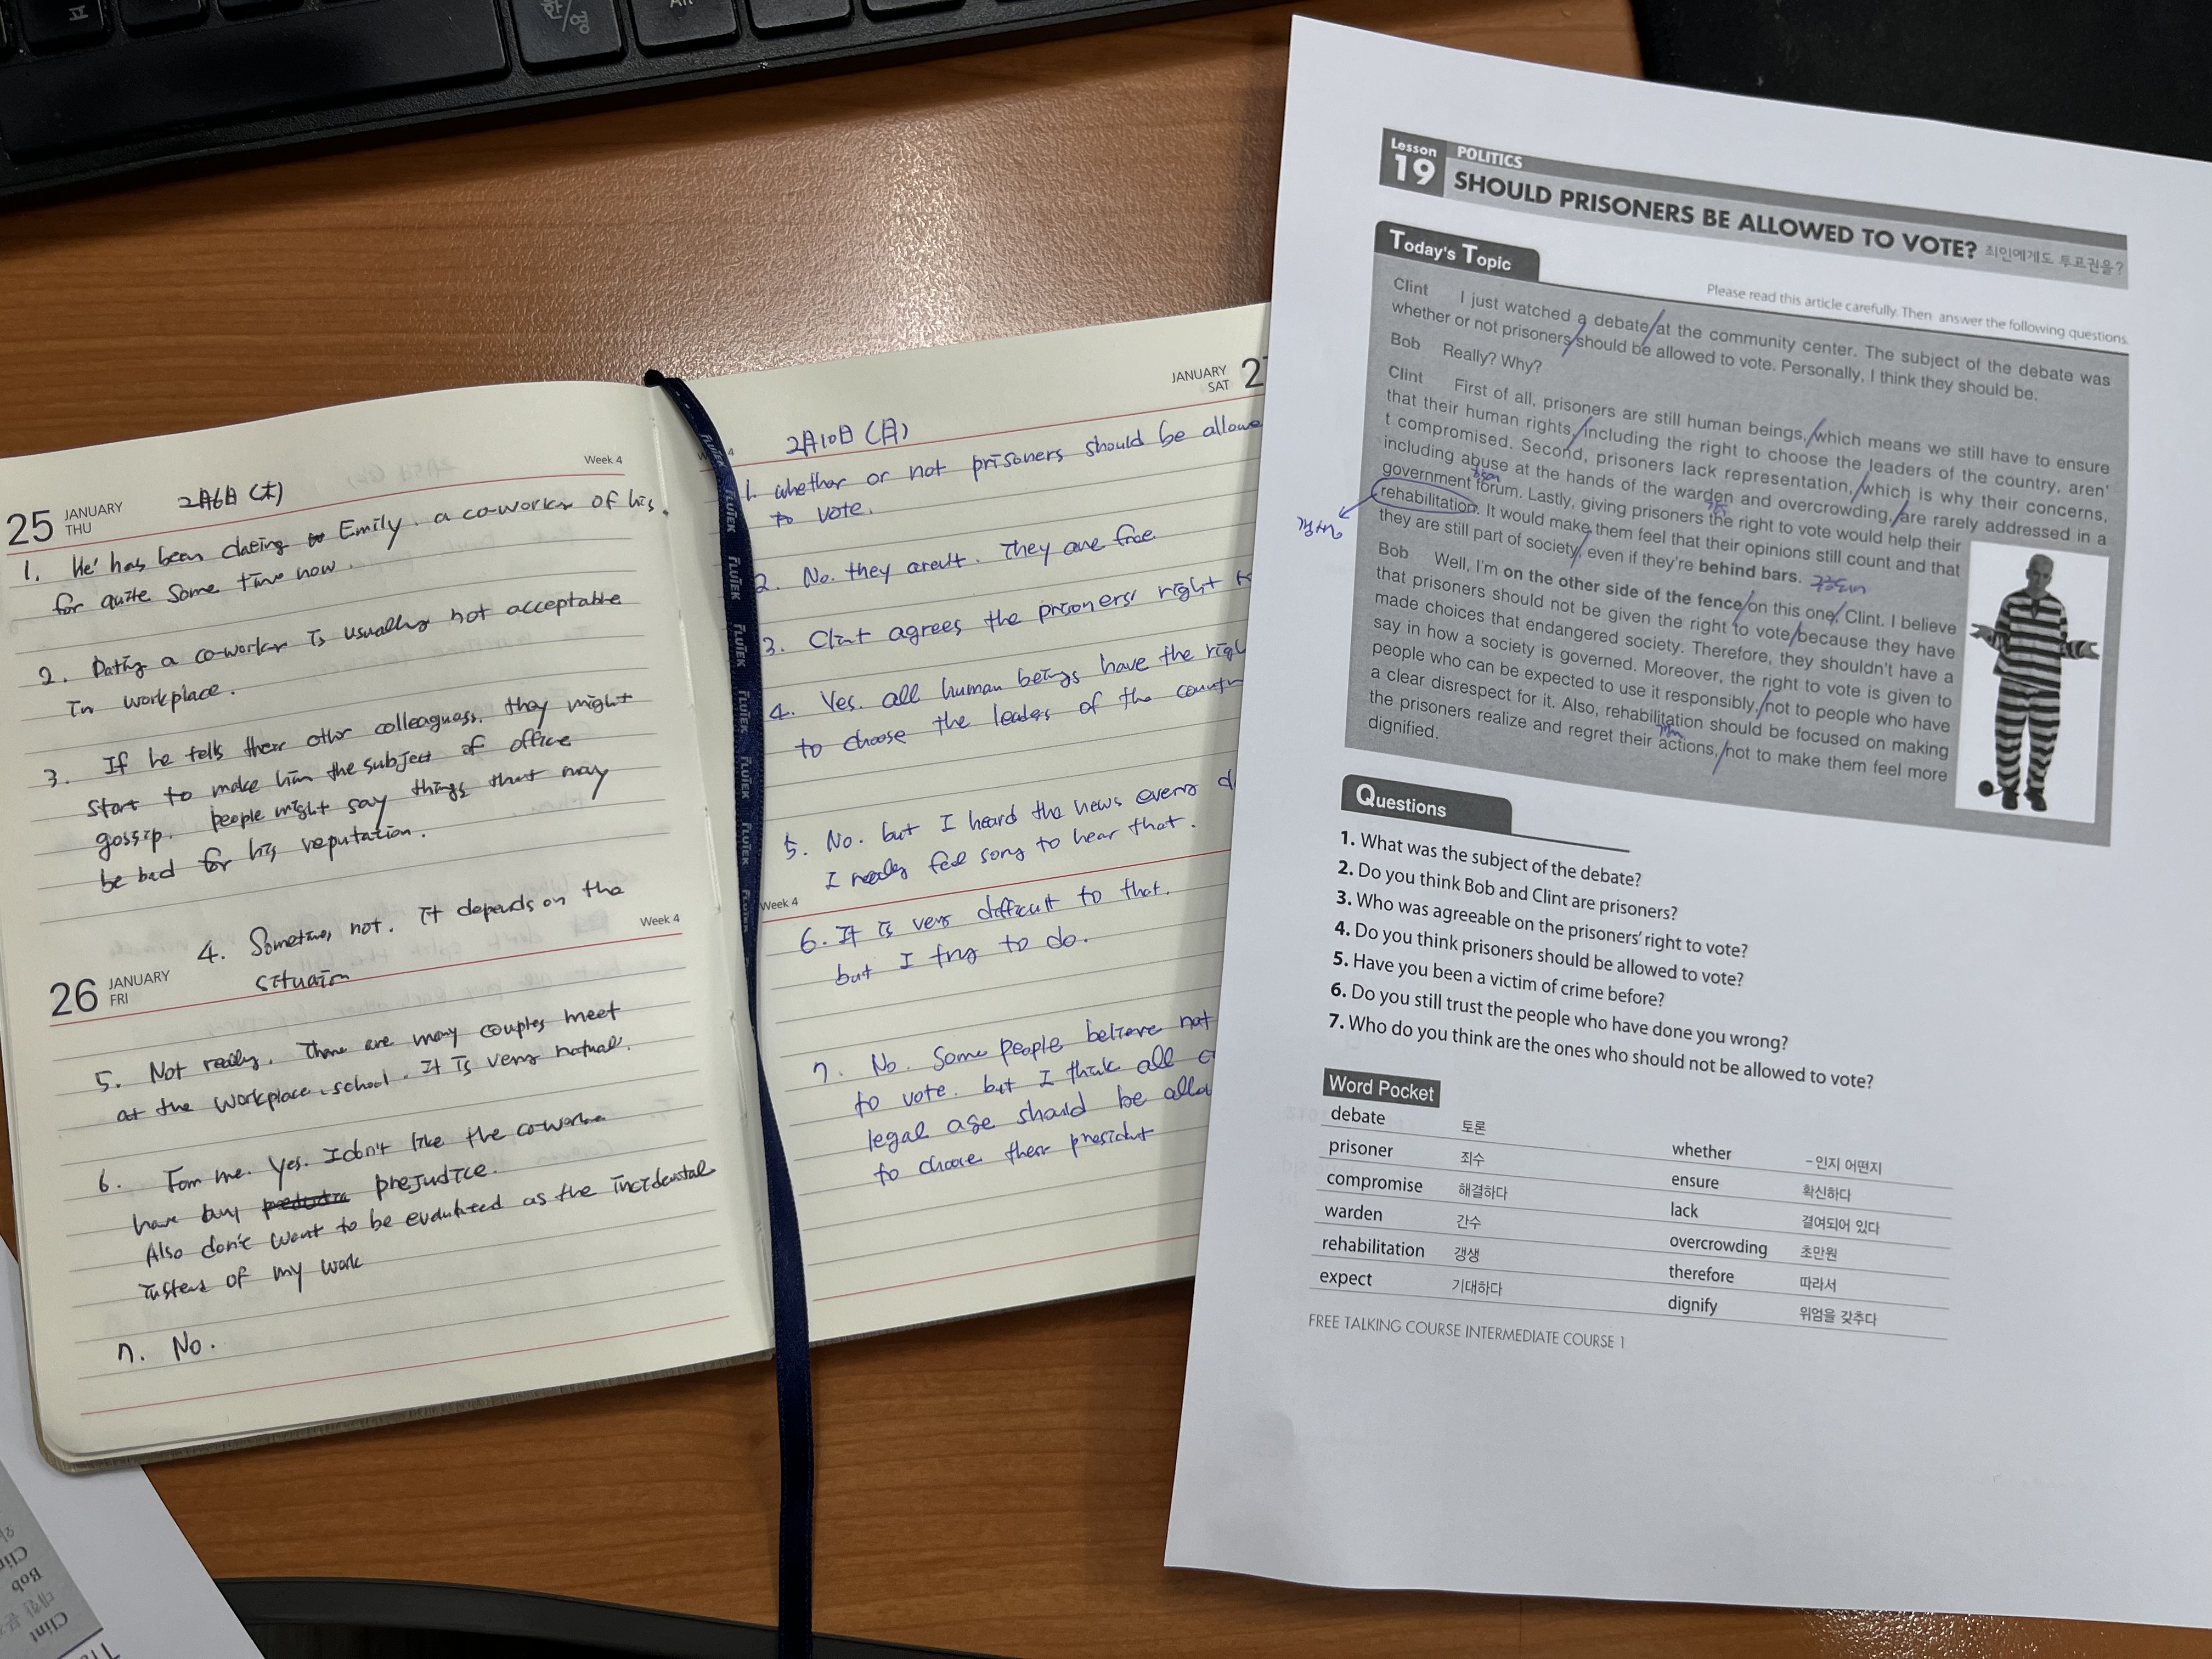 한/영
Alt
25 JANUARY
THU
Week 4
2月6日 (木)
1. He' has been dating to Emily. a co-worker of his.
for quite some time now.
2. Dating a co-worker is usually not acceptable
in workplace.
3. If he tells their other colleagues. they might
start to make him the subject of office
gossip. people might say things that may
be bad for his reputation.
4. Sometimes not. it depends on the
26 JANUARY
FRI
Week 4
5. Not really. There are many couples meet
at the workplace. school. It is very natural.
6. me. Yes. I don't like the co-worker
have prejudice.
Also don't want to be as the incidental
of my work
7. No.
JANUARY
SAT
2月10日 (月)
1. whether or not prisoners should be
to vote.
2. No. they aren't. They are free
3. Clint agrees the prisoners' right
4. Yes. all human beings have the
to choose the leaders of the
5. No. but I heard the news every
I really feel sorry to hear that.
Week 4
6. It is very difficult to that.
but I try to do.
7. No. Some people believe not
to vote. but I think all
legal age should be
to choose their president
FLUTEK FLUTEK FLUTEK FLUTEK FLUTEK FLUTEK FLUTEK FLUTEK
Lesson
19
POLITICS
SHOULD PRISONERS BE ALLOWED TO VOTE? 죄인에게도 투표권을?
Today's Topic
Please read this article carefully. Then answer the following questions.
Clint I just watched a debate at the community center. The subject of the debate was
whether or not prisoners should be allowed to vote. Personally, I think they should be.
Bob Really? Why?
Clint First of all, prisoners are still human beings, which means we still have to ensure
that their human rights, including the right to choose the leaders of the country, aren'
t compromised. Second, prisoners lack representation, which is why their concerns,
including abuse at the hands of the warden and overcrowding, are rarely addressed in a
government forum. Lastly, giving prisoners the right to vote would help their
rehabilitation. It would make them feel that their opinions still count and that
갱생
they are still part of society, even if they're behind bars.
Bob Well, I'm on the other side of the fence on this one, Clint. I believe
that prisoners should not be given the right to vote because they have
made choices that endangered society. Therefore, they shouldn't have a
say in how a society is governed. Moreover, the right to vote is given to
people who can be expected to use it responsibly, not to people who have
a clear disrespect for it. Also, rehabilitation should be focused on making
the prisoners realize and regret their actions, not to make them feel more
dignified.
Questions
1. What was the subject of the debate?
2. Do you think Bob and Clint are prisoners?
3. Who was agreeable on the prisoners' right to vote?
4. Do you think prisoners should be allowed to vote?
5. Have you been a victim of crime before?
6. Do you still trust the people who have done you wrong?
7. Who do you think are the ones who should not be allowed to vote?
Word Pocket
debate 토론 whether -인지 어떤지
prisoner 죄수 ensure 확신하다
compromise 해결하다 lack 결여되어 있다
warden 간수 overcrowding 초만원
rehabilitation 갱생 therefore 따라서
expect 기대하다 dignify 위엄을 갖추다
FREE TALKING COURSE INTERMEDIATE COURSE 1
Clint
Bob
Clint